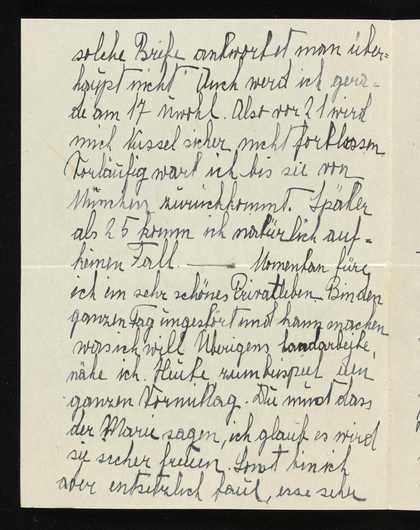 solche Briefe antwortet man über-
haupt nicht! Auch werd ich gera-
de am 17 unwohl. Also vor 21 wird
mich Kissel sicher nicht fortlassen
Vorläufig wart ich bis sie von
München zurückkommt. Später
als 25 komm ich natürlich auf-
keinen Fall. — Momentan führe
ich ein sehr schönes Privatleben. Bin den
ganzen Tag ungestört und kann machen
was ich will Übrigens handarbeite,
nähe ich. Heute zum beispiel den
ganzen Vormittag. Du musst dass
der Marie sagen, ich glaub es wird
sie sicher freuen. Sonst bin ich
aber entsetzlich faul, esse sehr